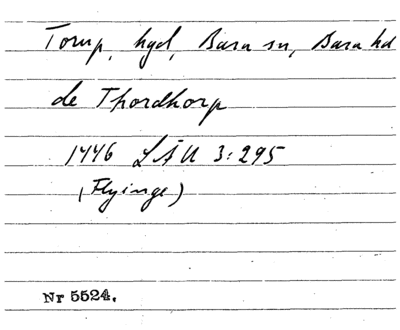 Torup, hgd, Bara sn, Bara hd
de Thordthorp
1446 LÄU 3:295
(Flyinge)
Nr 5524.